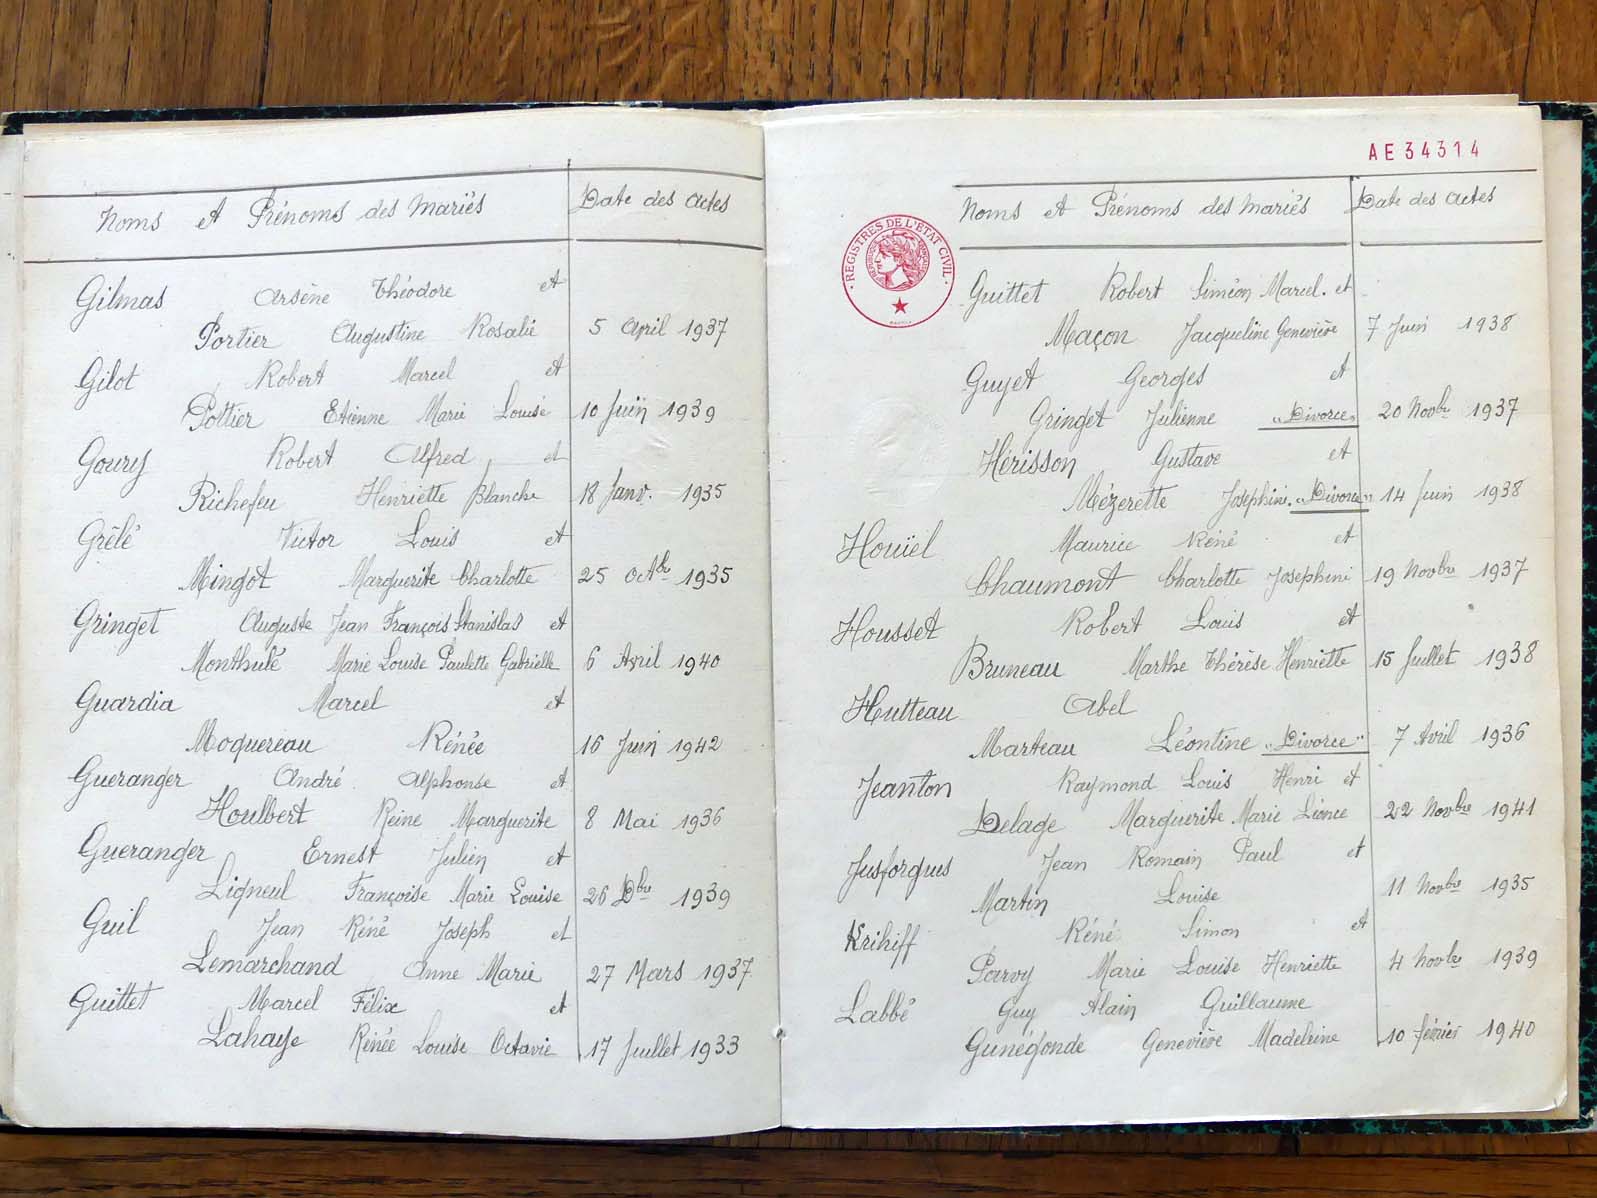 Noms et Prénoms des Mariés Date des Actes
Gilmas Arsène Théodore et
Portier Augustine Rosalie 5 April 1937
Gilot Robert Marcel et
Pottier Etienne Marie Louise 10 Juin 1939
Goury Robert Alfred et
Richefeu Henriette Blanche 18 Janv. 1935
Grêlé Victor Louis et
Mingot Marguerite Charlotte 25 Octbre 1935
Gringet Auguste Jean François Stanislas et
Monthulé Marie Louise Paulette Gabrielle 6 Avril 1940
Guardia Marcel et
Moquereau Rénée 16 Juin 1942
Gueranger André Alphonse et
Houlbert Reine Marguerite 8 Mai 1936
Gueranger Ernest Julien et
Ligneul Françoise Marie Louise 26 Dbre 1939
Guil Jean Réné Joseph et
Lemarchand Anne Marie 27 Mars 1937
Guittet Marcel Félix et
Lahaye Rénée Louise Octavie 17 Juillet 1933
AE34314
Noms et Prénoms des Mariés Date des Actes
REGISTRES DE L'ETAT CIVIL
REPUBLIQUE FRANÇAISE
Guittet Robert Siméon Marcel. et
Maçon Jacqueline Geneviève 7 Juin 1938
Guyet Georges et
Gringet Julienne "Divorce" 20 Novbre 1937
Hérisson Gustave et
Mézerette Joséphine. "Divorce" 14 Juin 1938
Houïel Maurice Réné et
Chaumont Charlotte Joséphine 19 Novbre 1937
Housset Robert Louis et
Bruneau Marthe Thérèse Henriette 15 Juillet 1938
Hutteau Abel
Marteau Léontine "Divorce" 7 Avril 1936
Jeanton Raymond Louis Henri et
Delage Marguerite Marie Léonce 22 Novbre 1941
Jusforgues Jean Romain Paul et
Martin Louise 11 Novbre 1935
Krihiff Réné Simon et
Parvy Marie Louise Henriette 4 Novbre 1939
Labbé Guy Alain Guillaume
Gunégonde Geneviève Madeleine 10 février 1940